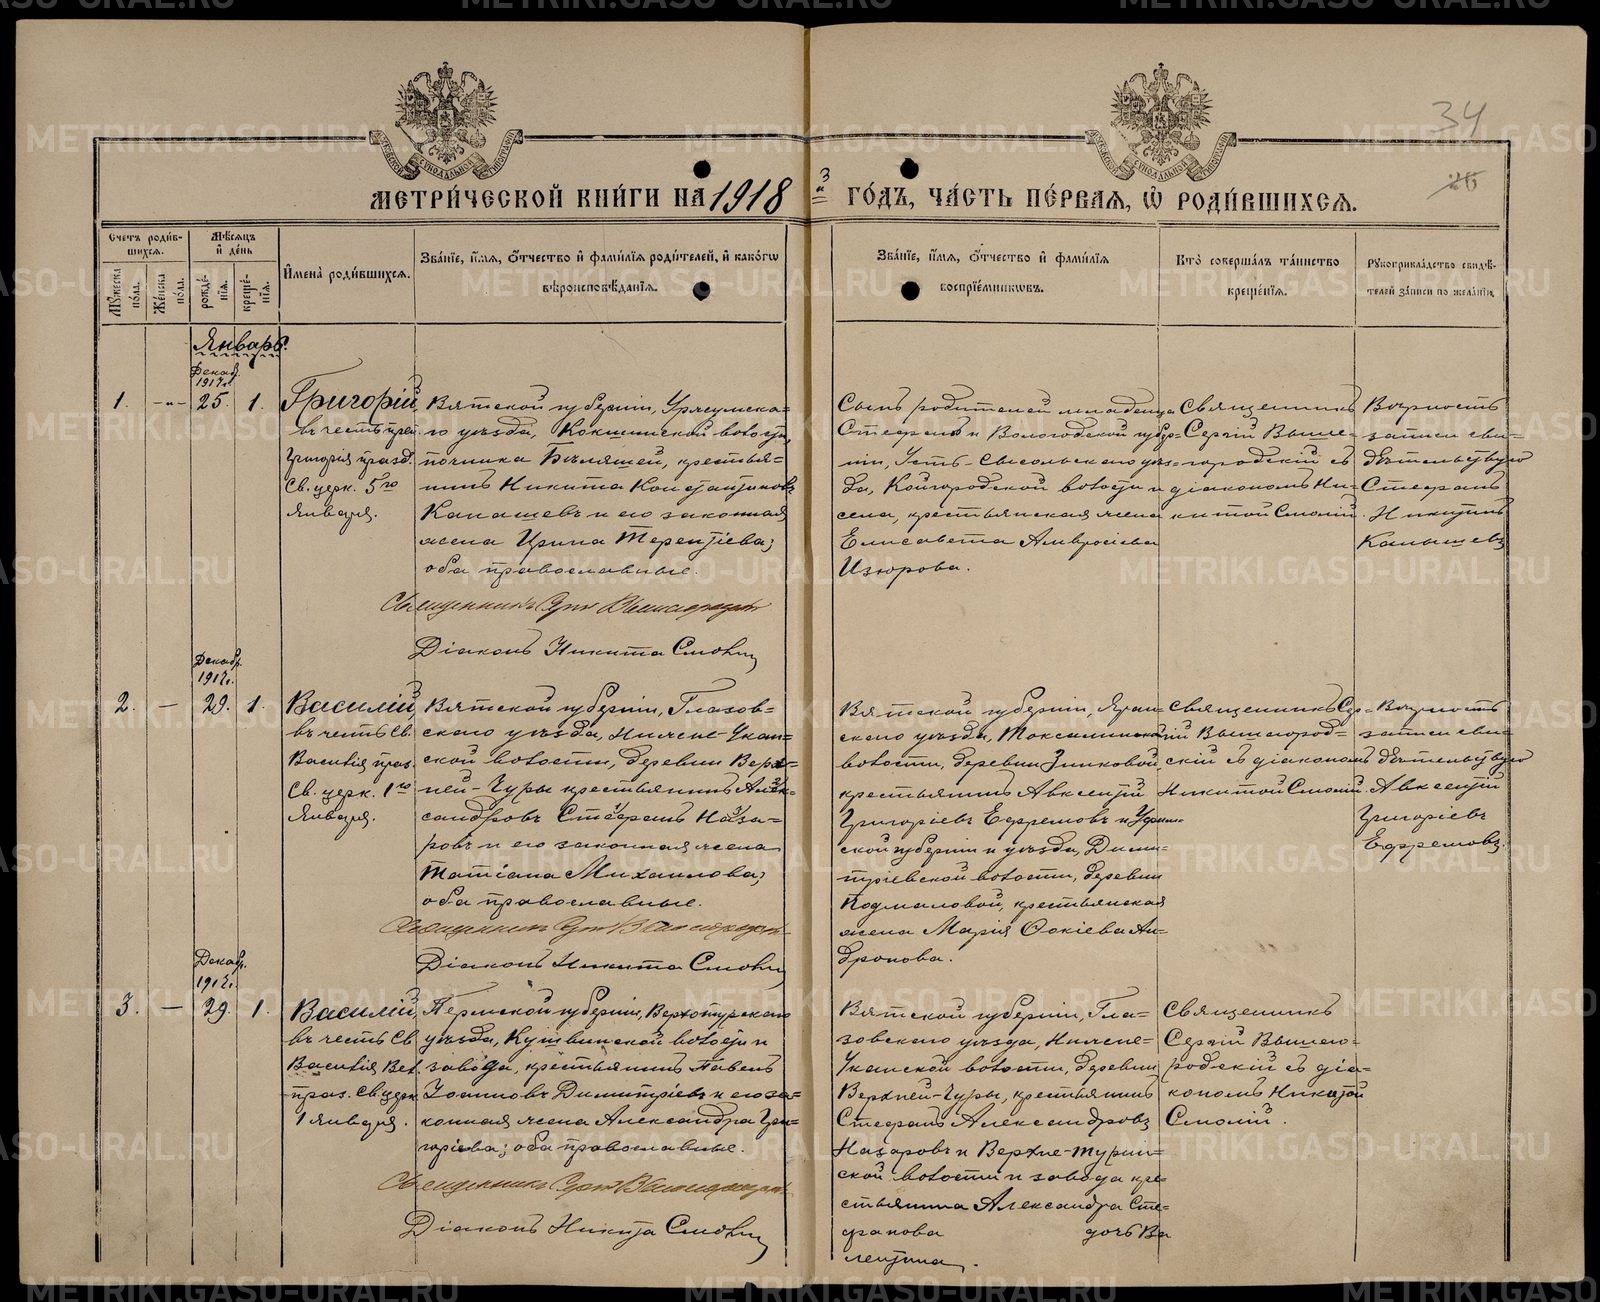 34
26
МЕТРИ́ЧЕСКОЙ КНИ́ГИ НА 1918 й ГО́ДЪ, ЧА́СТЬ ПЕ́РВАЯ, Ѡ҆ РОДИ́ВШИХСЯ.
Счетъ роди́вшихся.
Му́жеска по́ла.
Же́нска по́ла.
Мѣ́сяцъ и҆ де́нь
рожде́нїя.
креще́нїя.
И҆мена̀ роди́вшихся.
Зва́нїе, и҆́мя, ѻ҆́тчество и҆ фами́лїя роди́телей, и҆ како́гѡ
вѣроисповѣ́данїя.
Зва́нїе, и҆́мя, ѻ҆́тчество и҆ фами́лїя
воспрїе́мникѡвъ.
Кто̀ соверша́лъ та́инство
креще́нїя.
Рꙋкоприкла́дство свидѣ́-
телей за́писи по жела́нїю.
Январь.
Декаб.
1917 г.
1.
-"-
25.
1.
Григорій,
въ честь
Григорія празд.
Св. церк. 5го
Января.
Вятской губерніи, Уржумска-
го уѣзда, Кокшинской волости,
починка крестья-
нинъ Никита Константиновъ
Канашевъ и его законная
жена Ирина Терентіева;
оба православные.
Священникъ Сергій Вышегородскій
Діаконъ Никита Смолій
Сынъ родителей младенца
Стефанъ и Вологодской губер-
ніи, Усть-Сысольскаго уѣз-
да, Койгородской волости и
села, крестьянская жена
Елисавета Амвросіева
Изюрова.
Священникъ
Сергій Выше-
городскій съ
діакономъ Ни-
китой Смолій.
Вѣрность
записи сви-
дѣтельствую
Стефанъ
Никитинъ
Канашевъ
Декабр.
1917 г.
2.
—
29.
1.
Василій,
въ честь Св.
Василія праз.
Св. церк. 1го
Января.
Вятской губерніи, Глазов-
скаго уѣзда, Нижне-Укан-
ской волости, деревни Верх-
ней-Чуры крестьянинъ Алек-
сандровъ Стефанъ Наза-
ровъ и его законная жена
Татіана Михаилова;
оба православные.
Священникъ Сергій Вышегородскій
Діаконъ Никита Смолій
Вятской губерніи, Яран-
скаго уѣзда,
волости, деревни
крестьянинъ Авксентій
Григоріевъ Ефремовъ и Уфим-
ской губерніи и уѣзда, Дими-
тріевской волости, деревни
Подмаловой, крестьянская
жена Марія Фокіева Ан-
дронова.
Священникъ Сер-
гій Вышегород-
скій съ діакономъ
Никитой Смолій.
Вѣрность
записи сви-
дѣтельствую
Авксентій
Григоріевъ
Ефремовъ.
Декабр.
1917 г.
3.
—
29.
1.
Василій,
въ честь Св
Василія Вел.
праз. Св. церк
1 Января.
Пермской губерніи, Верхотурскаго
уѣзда, Кушвинской волости и
завода, крестьянинъ Павелъ
Іоанновъ Димитріевъ и его за-
конная жена Александра Гри-
горіева; оба православные.
Священникъ Сергій Вышегородскій
Діаконъ Никита Смолій
Вятской губерніи, Гла-
зовскаго уѣзда, Нижне-
Уканской волости, деревни
Верхней-Чуры, крестьянинъ
Стефанъ Александровъ
Назаровъ и Верхне-Турин-
ской волости и завода кре-
стьянина Александра Сте-
фанова дочь Ва
лентина.
Священникъ
Сергій Вышего-
родскій съ діа-
кономъ Никитой
Смолій.
METRIKI.GASO-URAL.RU